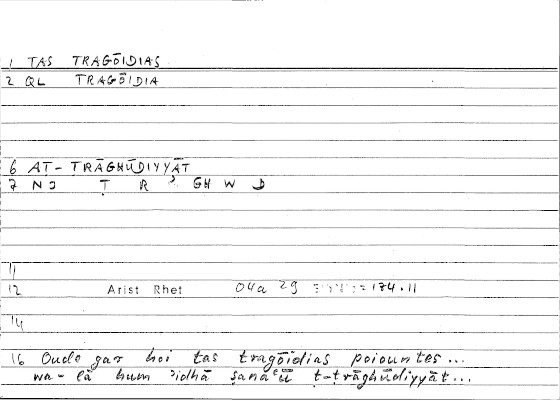 1 TAS TRAGŌIDIAS
2 QL TRAGŌIDIA
6 AṬ-ṬRĀGHŪDIYYĀT
7 NJ Ṭ R ʾ GH W D
11
12 Arist Rhet 04a 29 174.11
14
16 Oude gar hoi tas tragōidias poiountes...
wa-lā hum ʾidhā ṣanaʿū ṭ-ṭrāghūdiyyāt...